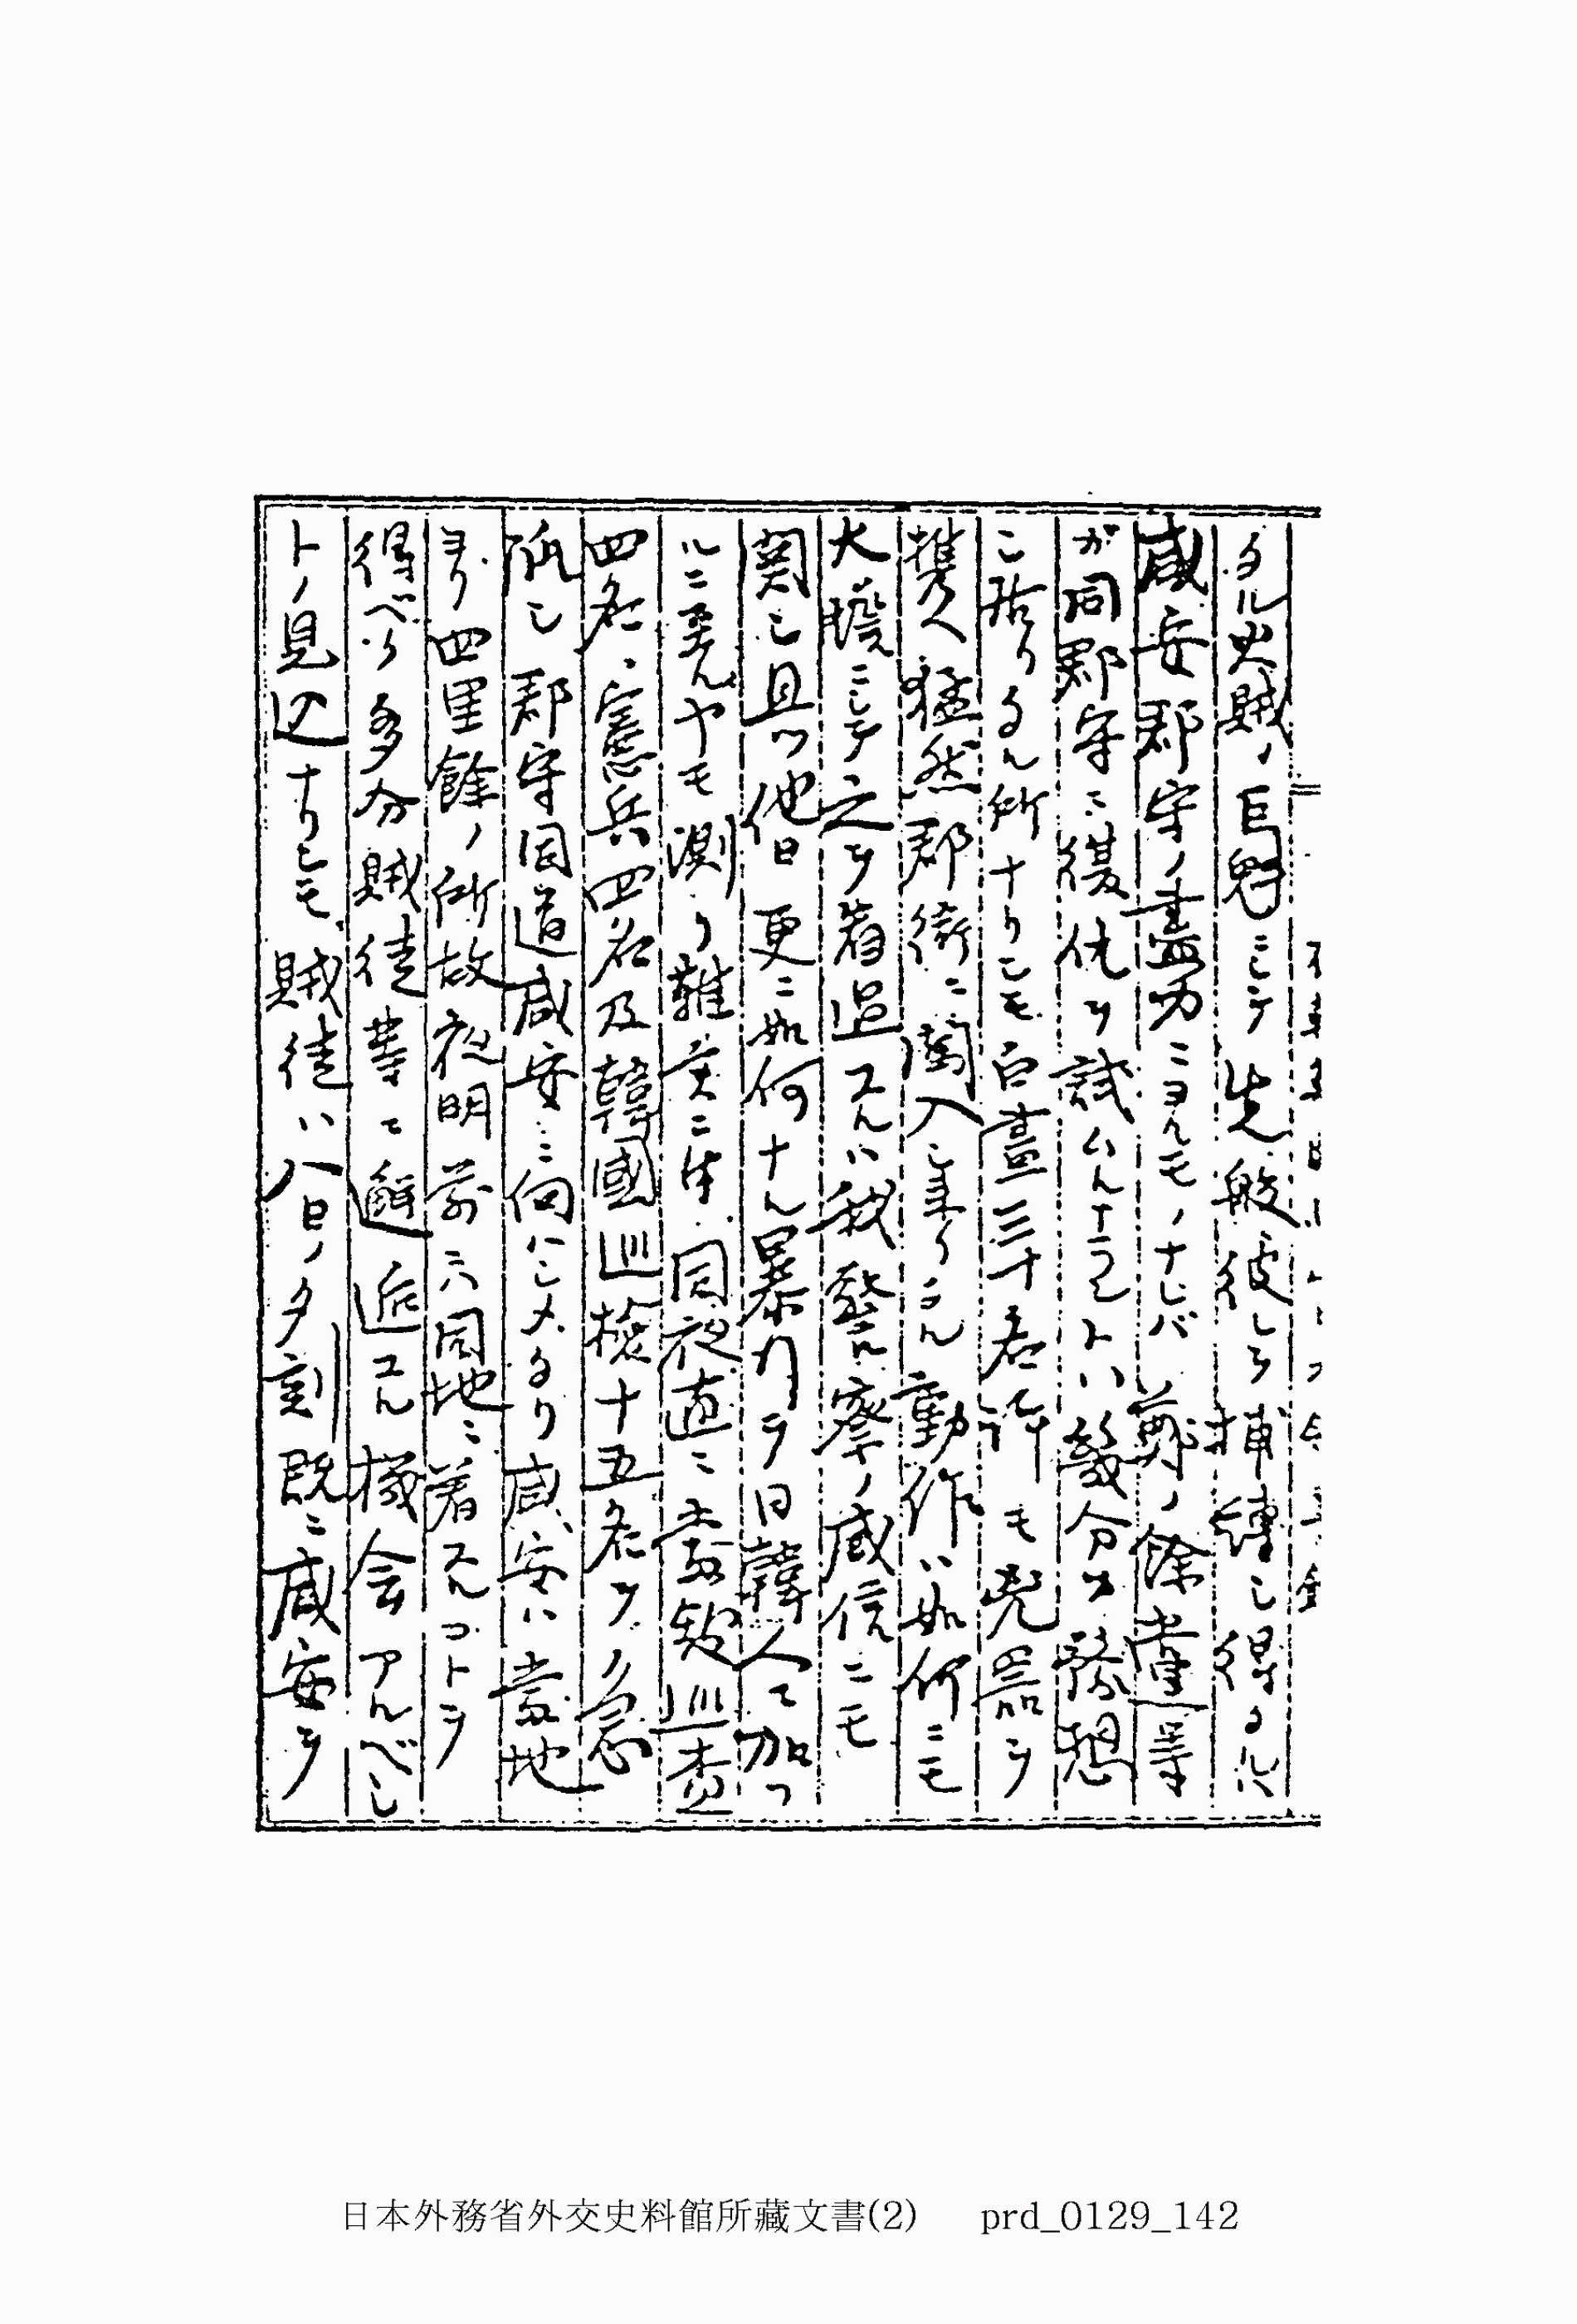 タル火賊ノ巨魁ニシテ先般彼レヲ捕縛シ得タルハ
咸安郡守ノ盡力ニヨルモノナレバ鄭ノ餘黨等
ガ同郡守ニ復仇ヲ試ムルナラントハ幾分カ豫想
シ居リタル所ナリシモ白晝三十名許モ兇器ヲ
携ヘ猛然郡衙ニ闖入シ来リタル動作ハ如何ニモ
大膽ニシテ之ヲ看過スルハ我警察ノ威信ニモ
関シ且ツ他日更ニ如何ナル暴行ヲ日韓人ニ加フ
ルニ至ルヤモ測リ難キニ付同夜直ニ當館巡査
四名、憲兵四名及韓國巡檢十五名ヲ急
派シ郡守同道咸安ニ向ハシメタリ咸安ハ當地
ヨリ四里餘ノ所故夜明前ニハ同地ニ着スルコトヲ
得ベク多分賊徒等ニ邂逅スル機会アルベシ
トノ見込ナリシモ、賊徒ハ八日ノ夕刻既ニ咸安ヲ
日本外務省外交史料館所藏文書(2) prd_0129_142